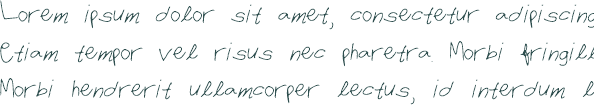 Lorem ipsum dolor sit amet, consectetur adipiscing
Etiam tempor vel risus nec pharetra. Morbi fringill
Morbi hendrerit ullamcorper lectus, id interdum l